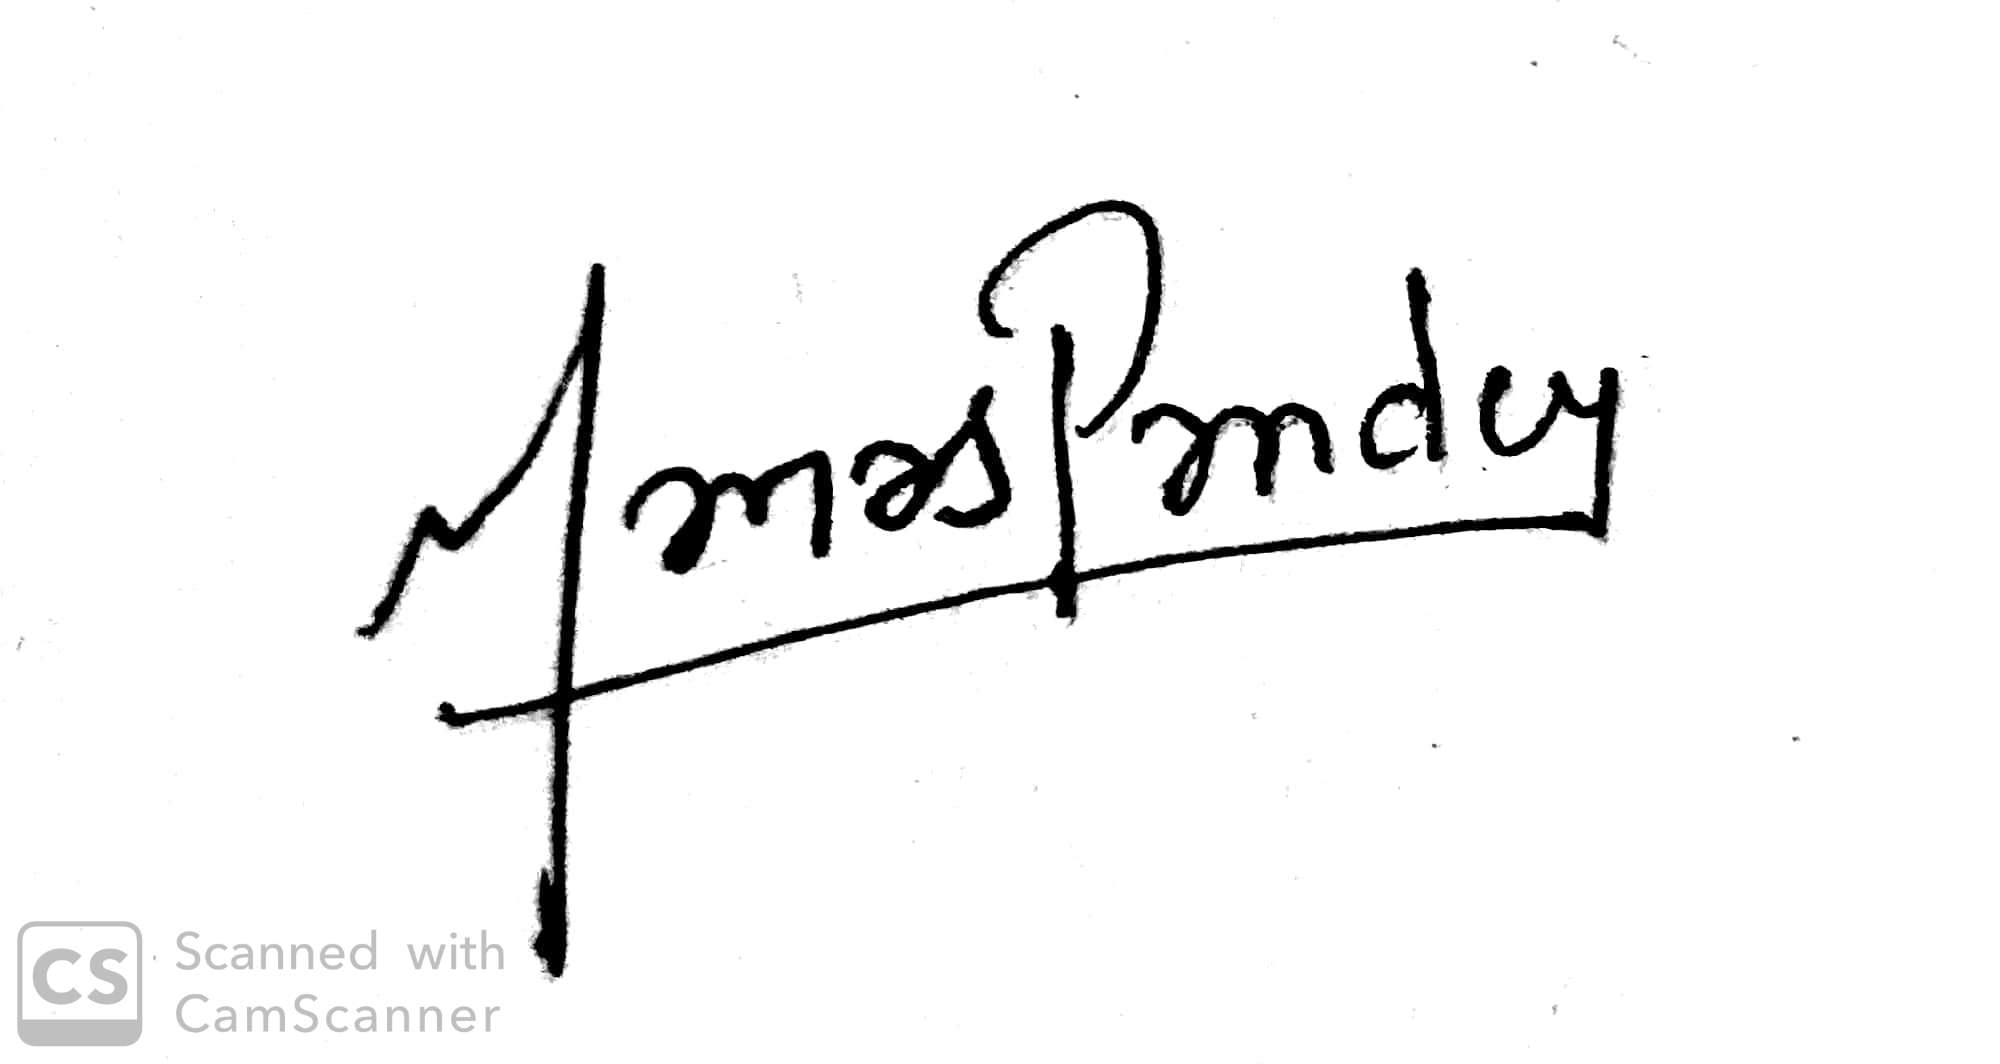 Manas Pandey
CS Scanned with
CamScanner